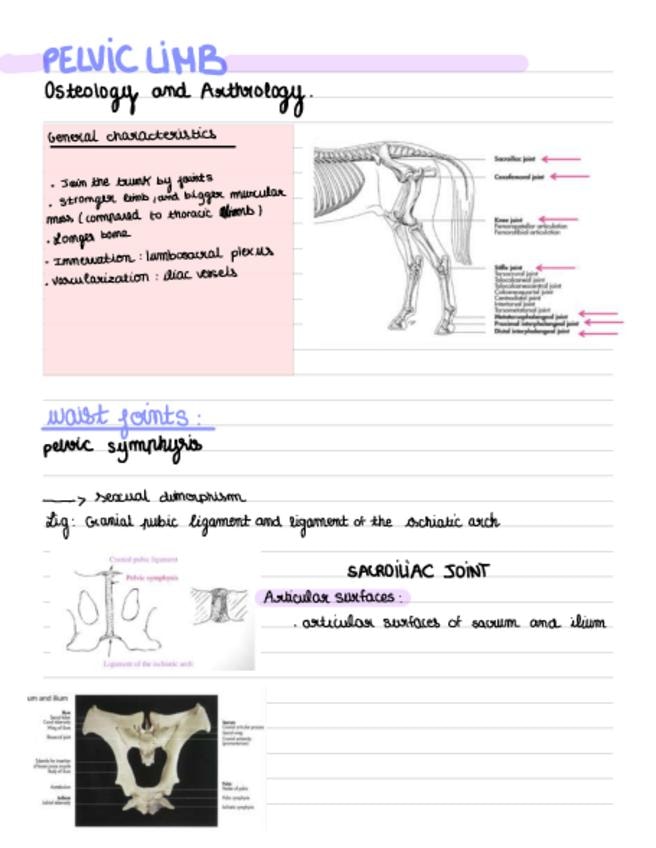 PELVIC LIMB
Osteology and Arthrology.
General characteristics
. Join the trunk by joints
. stronger limb, and bigger muscular
mass (compared to thoracic limb)
. Longer bone
. Innervation : lumbosacral plexus
. vascularization : iliac vessels
Sacroiliac joint
Coxofemoral joint
Knee joint
Femoropatellar articulation
Femorotibial articulation
Stifle joint
Tarsocrural joint
Talocalcaneal joint
Talocalcaneocentral joint
Calcaneoquartal joint
Centrodistal joint
Intertarsal joint
Tarsometatarsal joint
Metatarsophalangeal joint
Proximal interphalangeal joint
Distal interphalangeal joint
waist joints :
pelvic symphysis
sexual dimorphism
Lig: Cranial pubic ligament and ligament of the ischiatic arch
Cranial pubic ligament
Pelvic symphysis
Ligament of the ischiatic arch
SACROILIAC JOINT
Articular surfaces :
. articular surfaces of sacrum and ilium
um and ilium
Wing of ilium
Body of ilium
Acetabulum
Pelvic symphysis